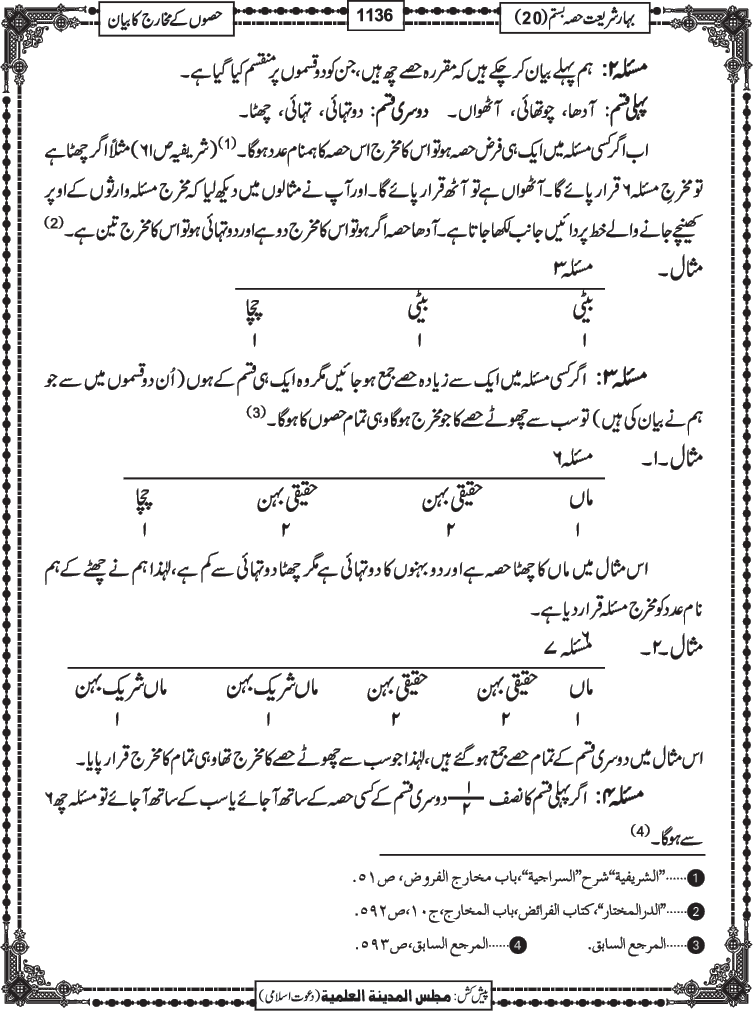 بہارِ شریعت حصہ بستم (20)
1136
حصوں کے مخارج کا بیان
مسئلہ ۲: ہم پہلے بیان کر چکے ہیں کہ مقررہ حصے چھ ہیں، جن کو دو قسموں پر منقسم کیا گیا ہے۔
پہلی قسم: آدھا، چوتھائی، آٹھواں۔ دوسری قسم: دو تہائی، تہائی، چھٹا۔
اب اگر کسی مسئلہ میں ایک ہی فرض حصہ ہو تو اس کا مخرج اس حصہ کا ہمنام عدد ہوگا۔(1) (شریفیہ ص ۶۱) مثلاً اگر چھٹا ہے
تو مخرجِ مسئلہ ۶ قرار پائے گا۔ آٹھواں ہے تو آٹھ قرار پائے گا۔ اور آپ نے مثالوں میں دیکھ لیا کہ مخرج مسئلہ وارثوں کے اوپر
کھینچے جانے والے خط پر دائیں جانب لکھا جاتا ہے۔ آدھا حصہ اگر ہو تو اس کا مخرج دو ہے اور دو تہائی ہو تو اس کا مخرج تین ہے۔(2)
مثال۔ مسئلہ ۳
بیٹی بیٹی چچا
۱ ۱ ۱
مسئلہ ۳: اگر کسی مسئلہ میں ایک سے زیادہ حصے جمع ہو جائیں مگر وہ ایک ہی قسم کے ہوں (اُن دو قسموں میں سے جو
ہم نے بیان کی ہیں) تو سب سے چھوٹے حصے کا جو مخرج ہوگا وہی تمام حصوں کا ہوگا۔(3)
مثال۔۱۔ مسئلہ ۶
ماں حقیقی بہن حقیقی بہن چچا
۱ ۲ ۲ ۱
اس مثال میں ماں کا چھٹا حصہ ہے اور دو بہنوں کا دو تہائی ہے مگر چھٹا دو تہائی سے کم ہے، لہٰذا ہم نے چھٹے کے ہم
نام عدد کو مخرج مسئلہ قرار دیا ہے۔
مثال۔۲۔ مسئلہ ۶ ۷
ماں حقیقی بہن حقیقی بہن ماں شریک بہن ماں شریک بہن
۱ ۲ ۲ ۱ ۱
اس مثال میں دوسری قسم کے تمام حصے جمع ہو گئے ہیں، لہٰذا جو سب سے چھوٹے حصے کا مخرج تھا وہی تمام کا مخرج قرار پایا۔
مسئلہ ۴: اگر پہلی قسم کا نصف ۱/۲ دوسری قسم کے کسی حصہ کے ساتھ آ جائے یا سب کے ساتھ آ جائے تو مسئلہ چھ ۶
سے ہوگا۔(4)
1 ......"الشريفية" شرح "السراجية"، باب مخارج الفروض، ص۵۱.
2 ......"الدرالمختار"، كتاب الفرائض، باب المخارج، ج۱۰، ص۵۹۲.
3 ......المرجع السابق. 4 ......المرجع السابق، ص۵۹۳.
پیش کش: مجلس المدينة العلمية (دعوت اسلامی)